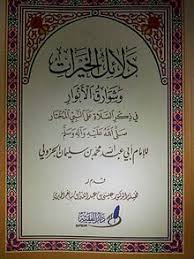 دلائل الخيرات
وشوارق الأنوار
في ذكر الصلاة على النبي المختار
صلى الله عليه وآله وسلم
للإمام أبي عبد الله محمد بن سليمان الجزولي
دار الفقيه